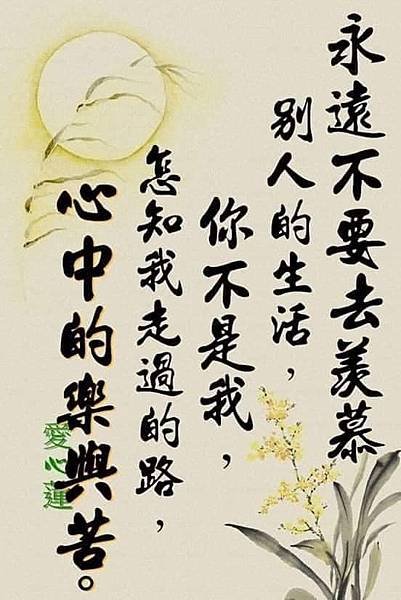 永遠不要去羨慕
別人的生活，
你不是我，
怎知我走過的路，
心中的樂與苦。
愛心蓮